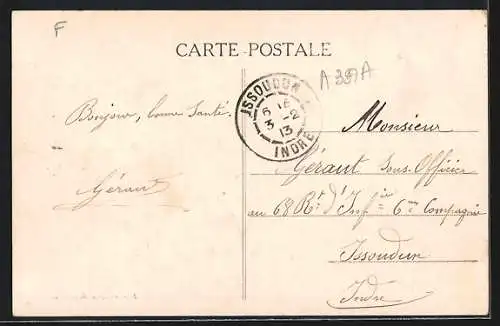 F
CARTE POSTALE
A 397A
ISSOUDUN
6 16
3 - 2
13
INDRE
Bonjour, bonne Santé.
Géraut
Monsieur
Géraut Sous-Officier
au 68 Rt d'Infie 6me Compagnie
Issoudun
Indre